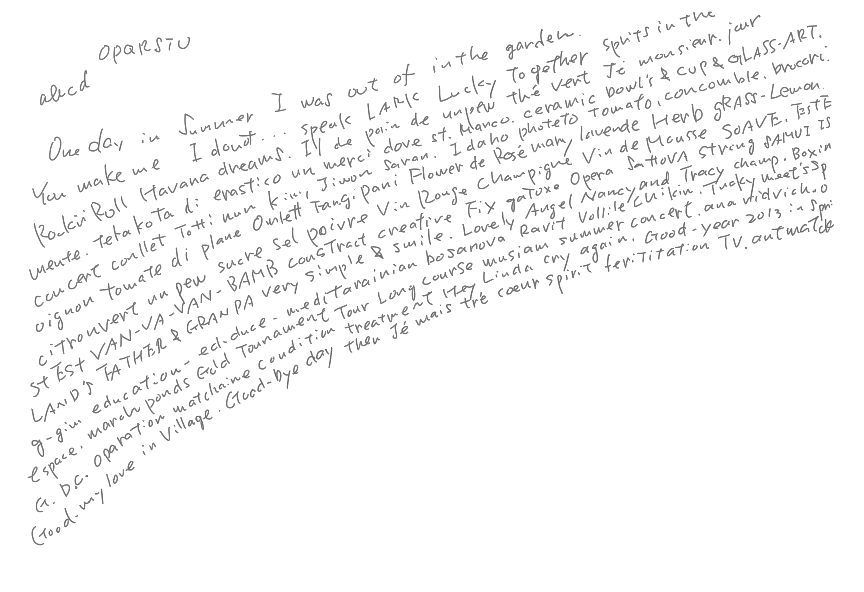 OPARSTU
abcd
One day in Summer I was out of in the garden.
You make me I doubt... speak LARK Lucky Together sprits in the
Rock'n'Roll Havana dreams. Il de pain de unpew thé vert Jé monsieur. jour
mente. Tetakota di erastico un merci dove st. Marco. ceramic bowl's & CUP & GLASS-ART.
concert coullet Totti nun Kim, Jiwon Saran. Idaho photeto Tomato, concomble, brocori.
oignon tomate di plane Omlett Tangipani Flower de Rosé mary lavende Herb gRASS-Lemon
ciTronvert un pew sucre sel poivre Vin Rouge Champigne Vin de Mousse SoAVE. ESTE
st EST VAN-VA-VAN-BAMB consTract creative Fix gaToxe Opera SattovA Strong SAMUI IS
LAND'S FATHER & GRANPA very simple & smile. Lovely Angel Nancy and Tracy champ. Boxin
g-gim education- ed-duce- meditarainian bosanova Ravit Vollile Chikin. Tucky meet's sp
espace. march ponds Gold Tounament Tour Long course musiam summer concert. ana vidvich. o
a. D.C. oparation matchaine Condition treatment Hey Linda cry again. Good-year 2013 in Spri
Good-my love in Village. Good-bye day then Jé mais tré cœur spirit feritiTation TV. antmatch